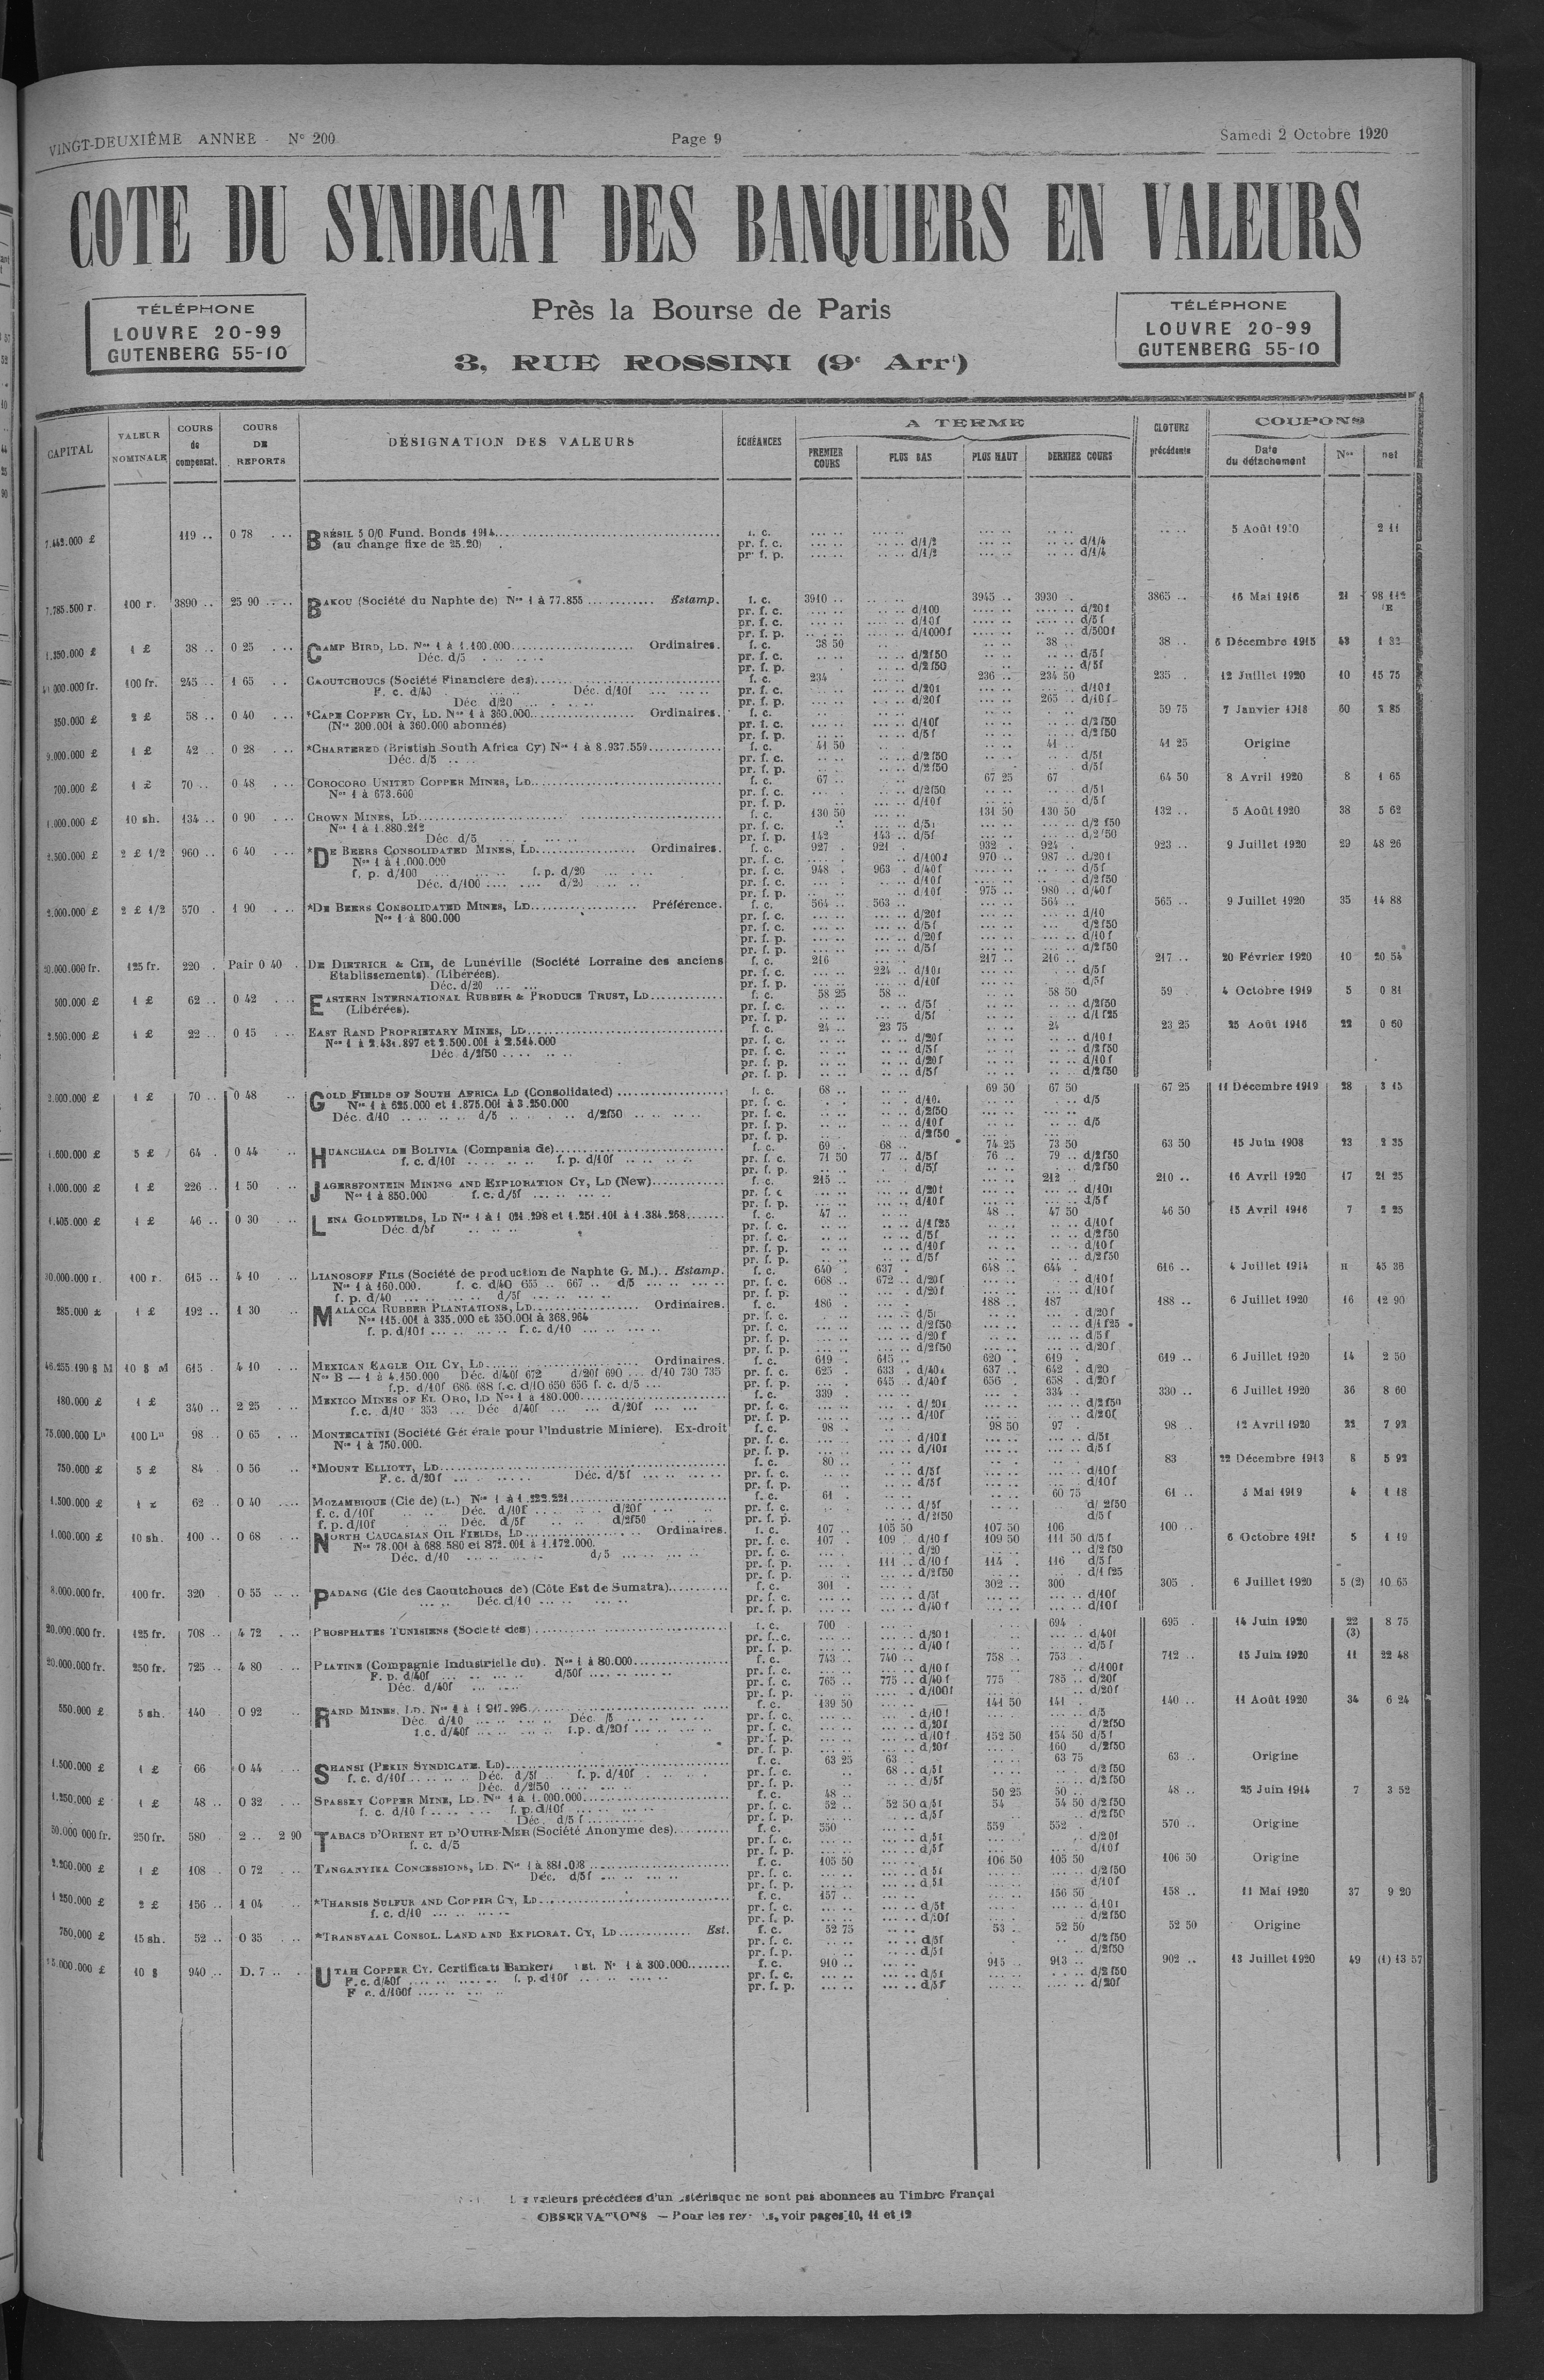 VINGT-DEUXIÈME ANNEE - N° 200
Page 9
Samedi 2 Octobre 1920
COTE DU SYNDICAT DES BANQUIERS EN VALEURS
TÉLÉPHONE
LOUVRE 20-99
GUTENBERG 55-10
Près la Bourse de Paris
3, RUE ROSSINI (9e Arrt)
TÉLÉPHONE
LOUVRE 20-99
GUTENBERG 55-10
CAPITAL VALEUR NOMINALE COURS de compensat. COURS DE REPORTS DÉSIGNATION DES VALEURS ÉCHÉANCES A TERME PREMIER COURS PLUS BAS PLUS HAUT DERNIER COURS CLOTURE précédente COUPONS Date du détachement Nos net
119 .. 0 78 BRÉSIL 5 0/0 Fund. Bonds 1914 5 Août 2 11
(au change fixe de 25.20) pr. f. c. d/1/2 d/1/4
pr. f. p. d/1/2 d/1/4
7.785.500 r. 100 r. 3890 .. 25 90 BAKOU (Société du Naphte de) Nos 1 à 77.855 Estamp. f. c. 3910 .. 3945 .. 3930 3865 .. 16 Mai 1916 21
pr. f. c. d/100 d/20f
pr. f. c. d/10f d/5f
pr. f. p. d/1000f d/500f
1.350.000 £ 1 £ 38 .. 0 25 CAMP BIRD, LD. Nos 1 à 1.100.000 Ordinaires. f. c. 38 50 38 .. 38 .. 6 Décembre 1915 43 1 32
Déc. d/5 pr. f. c. d/2f50 d/5f
pr. f. p. d/2f50 d/5f
100 fr. 245 .. 1 65 CAOUTCHOUCS (Société Financière des) f. c. 234 236 .. 234 50 235 12 Juillet 1920 10 15 75
F. c. d/40 Déc. d/10f pr. f. c. d/20f d/10f
Déc. d/20 pr. f. p. d/20f 265 .. d/10f
350.000 £ 2 £ 58 .. 0 40 *CAPE COPPER CY, LD. Nos 1 à 360.000 Ordinaires. f. c. 59 75 7 Janvier 1918 60 2 85
(Nos 300.001 à 360.000 abonnés) pr. f. c. d/10f d/2f50
pr. f. p. d/5f d/2f50
9.000.000 £ 1 £ 42 .. 0 28 *CHARTERED (Bristish South Africa Cy) Nos 1 à 8.937.559 f. c. 41 50 41 .. 41 25 Origine
Déc. d/5 pr. f. c. d/2f50 d/5f
pr. f. p. d/2f50 d/5f
700.000 £ 1 £ 70 .. 0 48 COROCORO UNITED COPPER MINES, LD f. c. 67 .. 67 25 67 64 50 8 Avril 1920 8 1 65
Nos 1 à 673.600 pr. f. c. d/2f50 d/5f
pr. f. p. d/10f d/5f
1.000.000 £ 10 sh. 134 .. 0 90 CROWN MINES, LD f. c. 130 50 131 50 130 50 132 .. 5 Août 1920 38 5 62
Nos 1 à 1.880.212 pr. f. c. d/5f d/2 f50
Déc. d/5 pr. f. p. 142 143 .. d/5f d/2f50
2.500.000 £ 2 £ 1/2 960 .. 6 40 *DE BEERS CONSOLIDATED MINES, LD Ordinaires. f. c. 927 921 932 924 923 .. 9 Juillet 1920 29 48 26
Nos 1 à 1.000.000 pr. f. c. d/100f 970 .. 987 .. d/20f
f. p. d/100 f. p. d/20 pr. f. c. 948 963 d/40f d/5f
Déc. d/100 d/20 pr. f. c. d/10f d/2f50
pr. f. p. d/10f 975 .. 980 .. d/40f
2.000.000 £ 2 £ 1/2 570 1 90 *DE BEERS CONSOLIDATED MINES, LD Préférence. f. c. 564 563 564 565 .. 9 Juillet 1920 35 14 88
Nos 1 à 800.000 pr. f. c. d/20f d/10
pr. f. c. d/5f d/2f50
pr. f. p. d/20f d/10f
pr. f. p. d/5f d/2f50
125 fr. 220 Pair 0 40 DE DIETRICH & CIE, de Lunéville (Société Lorraine des anciens f. c. 216 217 .. 216 .. 217 .. 20 Février 1920 10 20 54
Etablissements). (Libérées). pr. f. c. 224 .. d/10f d/5f
Déc. d/20 pr. f. p. d/10f d/5f
500.000 £ 1 £ 62 .. 0 42 EASTERN INTERNATIONAL RUBBER & PRODUCE TRUST, LD f. c. 58 25 58 .. 58 50 59 4 Octobre 1919 5 0 81
(Libérées). pr. f. c. d/5f d/2f50
pr. f. p. d/5f d/1f25
2.500.000 £ 1 £ 22 .. 0 15 EAST RAND PROPRIETARY MINES, LD f. c. 24 .. 23 75 24 23 25 25 Août 1916 22 0 60
Nos 1 à 2.431.897 et 2.500.001 à 2.514.000 pr. f. c. d/20f d/10f
Déc d/2f50 pr. f. c. d/5f d/2f50
pr. f. p. d/20f d/10f
pr. f. p. d/5f d/2f50
2.000.000 £ 1 £ 70 .. 0 48 GOLD FIELDS OF SOUTH AFRICA LD (Consolidated) f. c. 68 .. 69 50 67 50 67 25 11 Décembre 1919 28 3 15
Nos 1 à 625.000 et 1.875.001 à 3.250.000 pr. f. c. d/10 d/5
Déc. d/10 d/5 d/2f50 pr. f. c. d/2f50
pr. f. p. d/10f d/5
pr. f. p. d/2f50
1.600.000 £ 5 £ 64 0 44 HUANCHACA DE BOLIVIA (Compania de) f. c. 69 .. 68 .. 74 25 73 50 63 50 15 Juin 1908 23 2 35
f. c. d/10f f. p. d/10f pr. f. c. 71 50 77 .. d/5f 76 .. 79 .. d/2f50
pr. f. p. d/5f d/2f50
1.000.000 £ 1 £ 226 .. 1 50 JAGERSFONTEIN MINING AND EXPLORATION CY, LD (New) f. c. 215 .. 212 210 .. 16 Avril 1920 17 21 25
Nos 1 à 850.000 f. c. d/5f pr. f. c. d/20f d/10f
pr. f. p. d/10f d/5f
1.405.000 £ 1 £ 46 .. 0 30 LENA GOLDFIELDS, LD Nos 1 à 1 021.298 et 1.251.101 à 1.384.268 f. c. 47 .. 48 .. 47 50 46 50 15 Avril 1916 7 2 25
Déc d/5f pr. f. c. d/1f25 d/10f
pr. f. c. d/5f d/2f50
pr. f. p. d/10f d/10f
pr. f. p. d/5f d/2f50
100 r. 615 .. 4 10 LIANOSOFF FILS (Société de production de Naphte G. M.) Estamp. f. c. 640 637 648 .. 644 616 .. 4 Juillet 1914 45 36
Nos 1 à 160.000. f. c. d/40 655 667 d/5 pr. f. c. 668 .. 672 .. d/20f d/10f
f. p. d/40 d/5f pr. f. p. d/20f d/10f
285.000 £ 1 £ 192 .. 1 30 MALACCA RUBBER PLANTATIONS, LD Ordinaires. f. c. 186 188 .. 187 188 .. 6 Juillet 1920 16 12 90
Nos 115.001 à 335.000 et 350.001 à 368.964 pr. f. c. d/5f d/20f
f. p. d/10f f. c. d/10 pr. f. c. d/2f50 d/1f25
pr. f. p. d/20f d/5f
pr. f. p. d/2f50 d/20f
46.255.190 $ M 10 $ M 615 4 10 MEXICAN EAGLE OIL CY, LD Ordinaires. f. c. 619 615 .. 620 619 619 .. 6 Juillet 1920 14 2 50
Nos B — 1 à 4.150.000 Déc. d/40f 672 d/20f 690 d/10 730 735 pr. f. c. 625 633 d/40f 637 642 .. d/20
f.p. d/10f 686 688 f.c. d/10 650 656 f. c. d/5 pr. f. p. 645 d/40f 656 658 .. d/20f
180.000 £ 1 £ 340 .. 2 25 MEXICO MINES OF EL ORO, LD Nos 1 à 180.000 f. c. 339 334 330 .. 6 Juillet 1920 36 8 60
f.c. d/10 353 Déc d/40f d/20f pr. f. c. d/20f d/2f50
pr. f. p. d/10f d/20f
75.000.000 Ls 100 Ls 98 0 65 MONTECATINI (Société Générale pour l'Industrie Minière). Ex-droit f. c. 98 .. 98 50 97 98 12 Avril 1920 22 7 92
Nos 1 à 750.000. pr. f. c. d/10f d/5f
pr. f. p. d/10f d/5f
750.000 £ 5 £ 84 0 56 *MOUNT ELLIOTT, LD f. c. 80 .. 83 22 Décembre 1913 8 5 92
F. c. d/20f Déc. d/5f pr. f. c. d/5f d/10f
pr. f. p. d/5f d/10f
1.500.000 £ 62 0 40 MOZAMBIQUE (Cie de) (L.) Nos 1 à 1.222.221 f. c. 61 60 75 61 .. 5 Mai 1919 4 1 18
f. c. d/10f Déc. d/10f d/20f pr. f. c. d/5f d/2f50
f. p. d/10f Déc. d/5f d/2f50 pr. f. p. d/2f50 d/5f
1.000.000 £ 10 sh. 100 .. 0 68 NORTH CAUCASIAN OIL FIELDS, LD Ordinaires. f. c. 107 .. 105 50 107 50 106 100 .. 6 Octobre 5 1 19
Nos 78.001 à 688.580 et 872.001 à 1.172.000. pr. f. c. 107 109 d/10f 109 50 111 50 d/5f
Déc. d/10 d/5 pr. f. c. d/20 d/2f50
pr. f. p. 111 .. d/10f 114 116 d/5f
pr. f. p. d/2f50 d/1f25
8.000.000 fr. 100 fr. 320 0 55 PADANG (Cie des Caoutchoucs de) (Côte Est de Sumatra) f. c. 301 302 .. 300 305 6 Juillet 1920 5 (2) 10 65
Déc. d/10 pr. f. c. d/5f d/10f
pr. f. p. d/40f d/10f
20.000.000 fr. 125 fr. 708 .. 4 72 PHOSPHATES TUNISIENS (Société des) f. c. 700 694 695 14 Juin 1920 22 (3) 8 75
pr. f. c. d/20f d/40f
pr. f. p. d/40f d/5f
20.000.000 fr. 250 fr. 725 .. 4 80 PLATINE (Compagnie Industrielle du). Nos 1 à 80.000 f. c. 743 740 758 .. 753 742 .. 15 Juin 1920 11 22 48
F. p. d/40f d/50f pr. f. c. d/10f d/100f
Déc. d/40f pr. f. c. 765 775 .. d/40f 775 785 .. d/20f
pr. f. p. d/100f d/20f
550.000 £ 5 sh. 140 0 92 RAND MINES, LD. f. c. 139 50 141 50 141 140 .. 11 Août 1920 34 6 24
Déc. d/10 Déc. /5 pr. f. c. d/10f d/5
f.c. d/40f f.p. d/20f pr. f. c. d/20f d/2f50
pr. f. p. d/10f 152 50 154 50 d/5f
pr. f. p. d/20f 160 d/2f50
1.500.000 £ 1 £ 66 0 44 SHANSI (PEKIN SYNDICATE. LD) f. c. 63 25 63 63 75 63 Origine
f. c. d/10f Déc. d/5f f. p. d/40f pr. f. c. 68 .. d/5f d/2f50
Déc. d/2f50 pr. f. p. d/5f d/2f50
1.250.000 £ 1 £ 48 .. 0 32 SPASSKY COPPER MINE, LD. Nos 1 à 1.000.000 f. c. 48 .. 50 25 50 .. 48 .. 25 Juin 1914 7 3 52
f. c. d/10 f f. p. d/10f pr. f. c. 52 .. 52 50 d/5f 54 54 50 d/2f50
Déc. d/5 f pr. f. p. d/5f d/2f50
250 fr. 580 2 .. 2 90 TABACS D'ORIENT ET D'OUTRE-MER (Société Anonyme des) f. c. 550 559 552 570 .. Origine
f. c. d/5 pr. f. c. d/5f d/20f
pr. f. p. d/5f d/10f
1 £ 108 0 72 TANGANYIKA CONCESSIONS, LD. f. c. 105 50 106 50 105 50 106 50 Origine
Déc. d/5f pr. f. c. d/5f d/2f50
pr. f. p. d/5f d/10f
1 250.000 £ 2 £ 156 .. 1 04 *THARSIS SULFUR AND COPPER CY, LD f. c. 157 .. 156 50 158 .. 11 Mai 1920 37 9 20
f. c. d/10 pr. f. c. d/5f d/10f
pr. f. p. d/20f d/2f50
750.000 £ 15 sh. 52 .. 0 35 *TRANSVAAL CONSOL. LAND AND EXPLORAT. CY, LD Est. f. c. 52 75 53 52 50 52 50 Origine
pr. f. c. d/5f d/2f50
pr. f. p. d/5f d/2f50
10 $ 940 .. D. 7 UTAH COPPER CY. Certificats Bankers 1 à 300.000 f. c. 910 .. 915 913 902 .. 13 Juillet 1920 49 (1) 13 57
F. c. d/40f f. p. d/10f pr. f. c. d/5f d/2f50
F c. d/100f pr. f. p. d/5f d/20f
valeurs précédées d'un astérisque ne sont pas abonnees au Timbre Françai
OBSERVATIONS — Pour les voir pages 10, 11 et 12